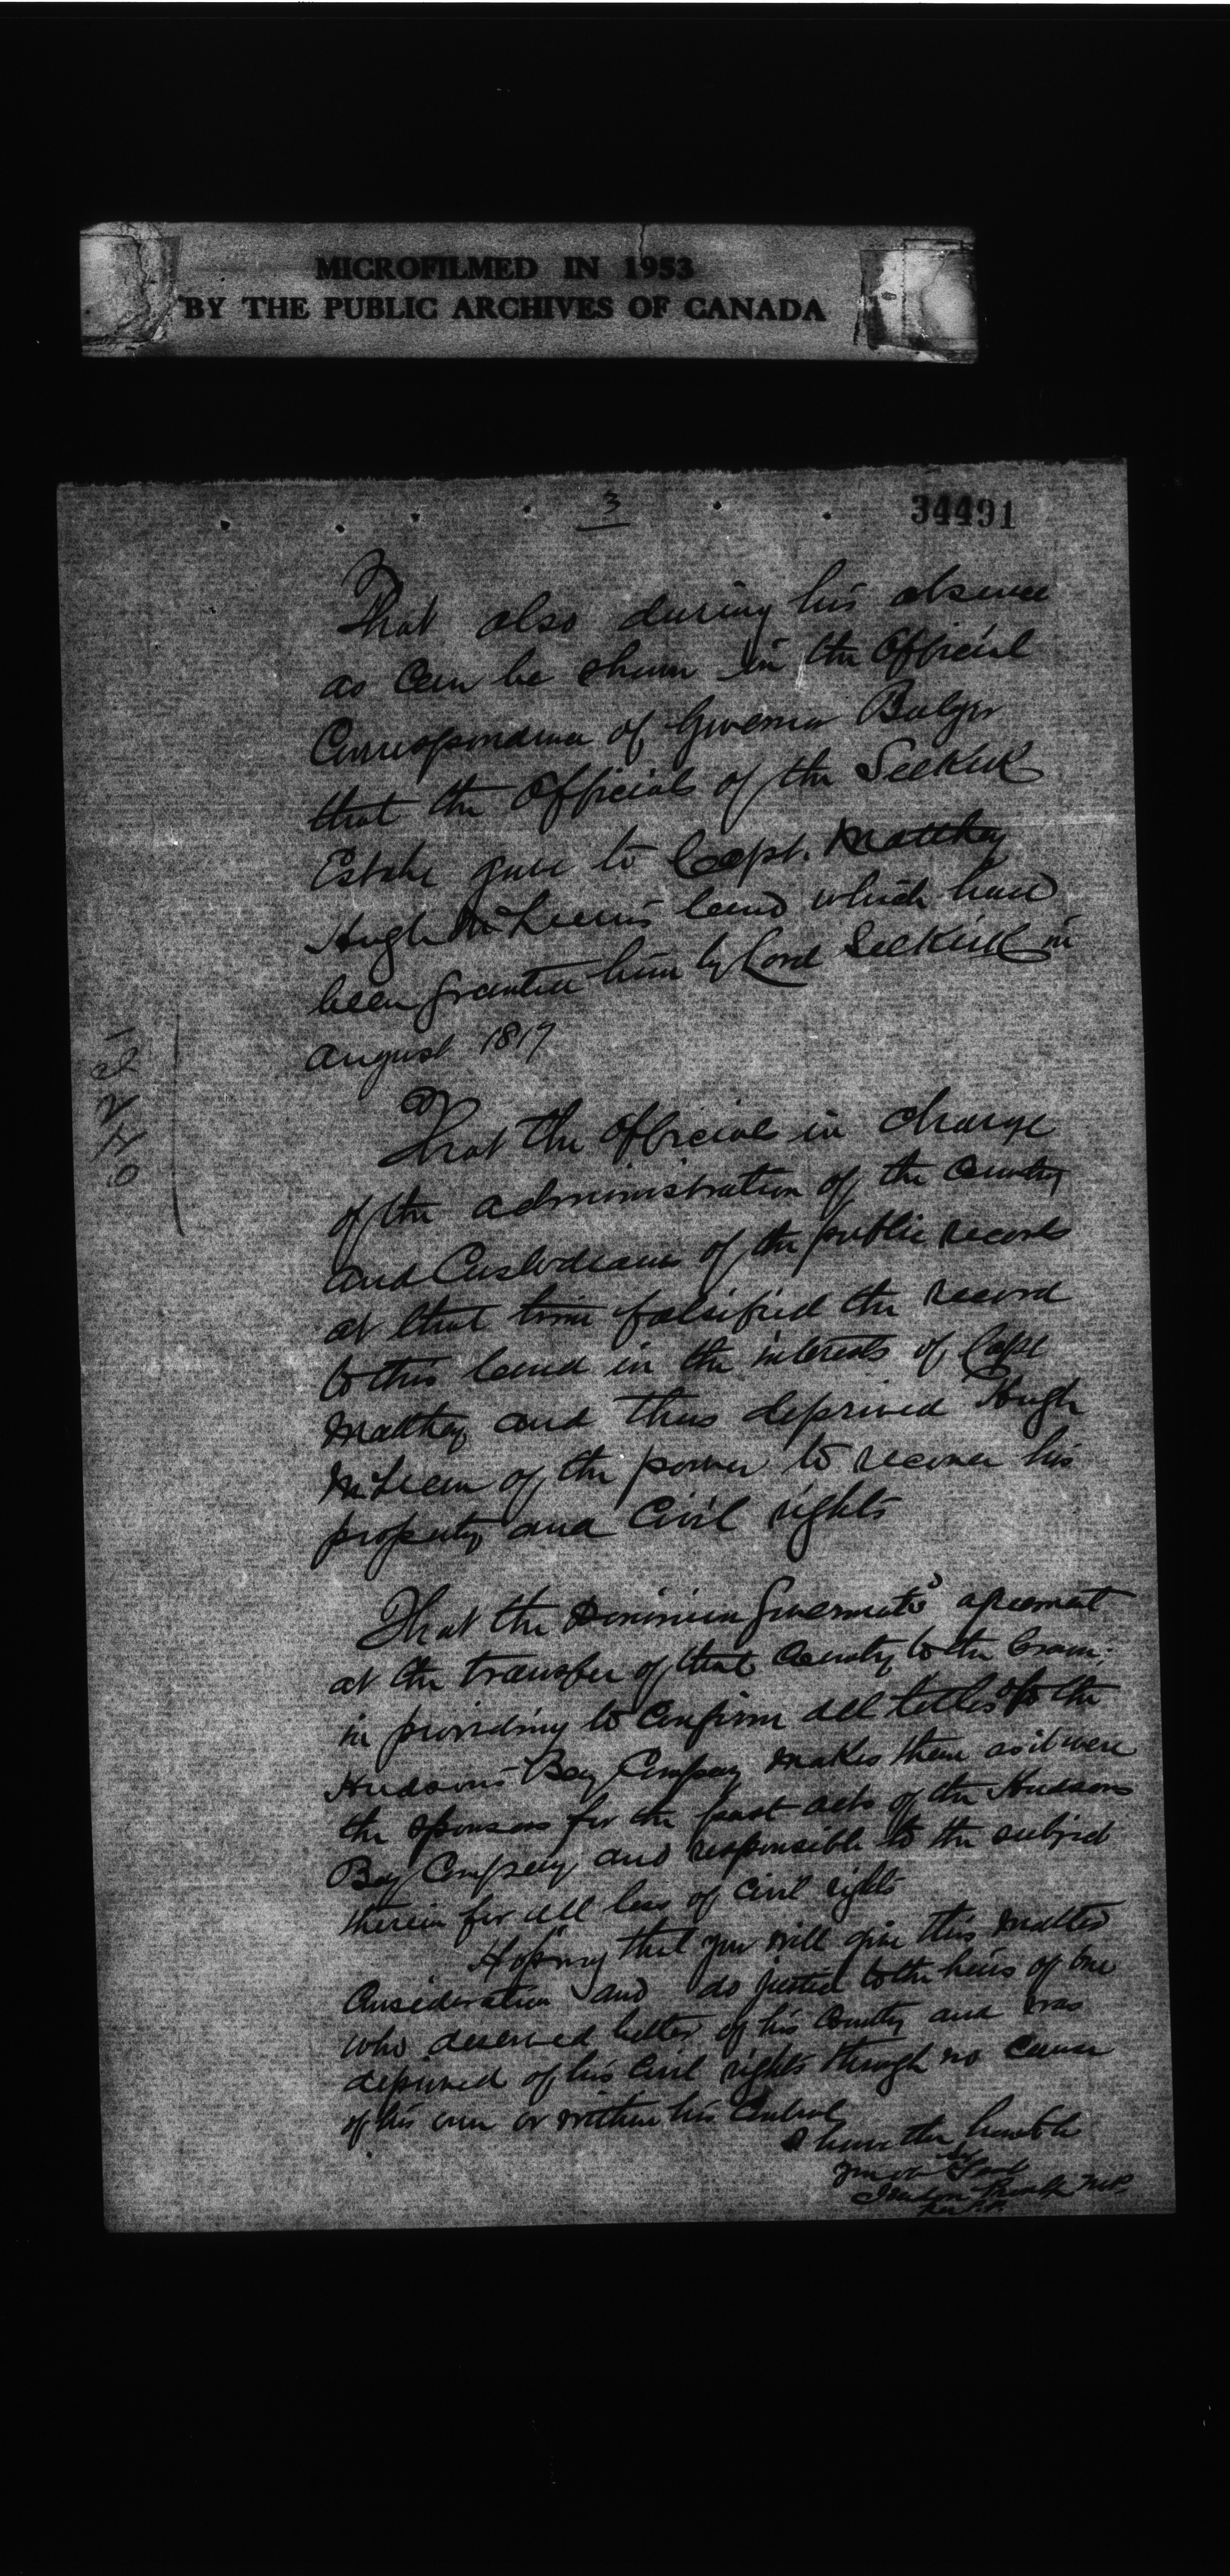 MICROFILMED IN 1953
BY THE PUBLIC ARCHIVES OF CANADA
3
34491
That also during his absence
as can be shown in the Official
Correspondence of Governor Bulger
that the Officials of the Selkirk
Estate gave to Capt. Matthey
Hugh McLean's land which had
been granted him by Lord Selkirk in
August 1817
That the Officials in charge
of the administration of the Country
and Custodians of the public records
at that time falsified the record
to this land in the interests of Capt
Matthey and thus deprived Hugh
McLean of the power to recover his
property and Civil rights
That the Dominion Goverments agreement
at the transfer of that Country to the Crown
in providing to Confirm all titles of the
Hudsons Bay Company makes them as it were
the sponsors for the past acts of the Hudsons
Bay Company and responsible to the subject
therein for all loss of Civil rights
Hoping that you will give this matter
Consideration and do justice to the heirs of one
who deserved better of his Country and was
deprived of his Civil rights through no cause
of his own or within his Control
I have the honor to